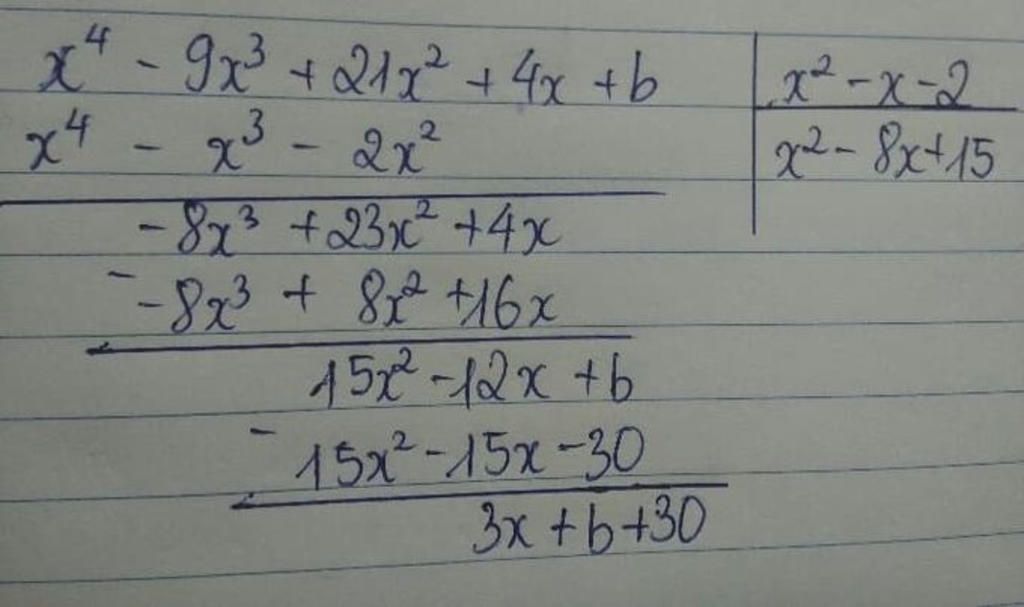 x⁴ - 9x³ + 21x² + 4x + b | x² - x - 2
x⁴ - x³ - 2x² | x² - 8x + 15
- 8x³ + 23x² + 4x
-
- 8x³ + 8x² + 16x
15x² - 12x + b
-
15x² - 15x - 30
3x + b + 30